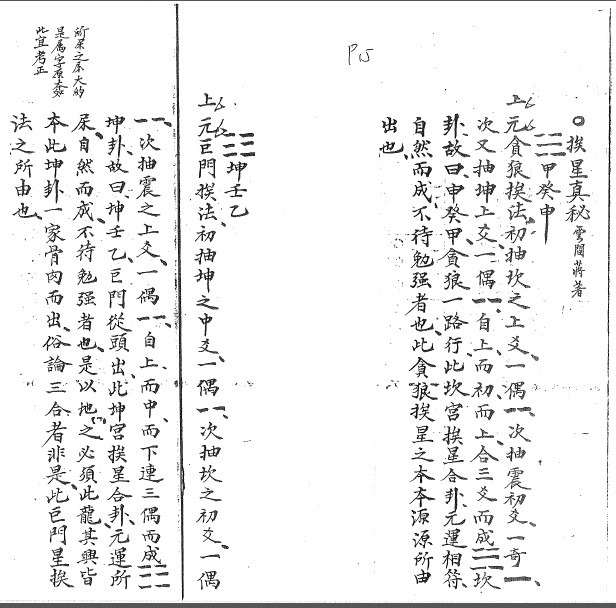 P15
○挨星真秘 雲間蔣著
☵甲癸申
上元貪狼挨法、初抽坎之上爻、一偶⚋、次抽震初爻、一奇⚊、
次又抽坤上爻、一偶⚋、自上而初而上、合三爻而成☵坎
卦、故曰申癸甲、貪狼一路行、此坎宮挨星合卦、元運相符、
自然而成、不待勉强者也、此貪狼挨星之本本源源所由
出也、
☷坤壬乙
上元巨門挨法、初抽坤之中爻、一偶⚋、次抽坎之初爻、一偶
⚋、次抽震之上爻、一偶⚋、自上而中、而下連三偶而成☷
坤卦、故曰坤壬乙、巨門從頭出、此坤宮挨星合卦、元運所
屎、自然而成、不待勉强者也、是以地之必須此龍、其興皆
本此坤卦一家骨肉而出、俗論三合者非是、此巨門星挨
法之所由也、
所屎之
是屬字
此宜考正